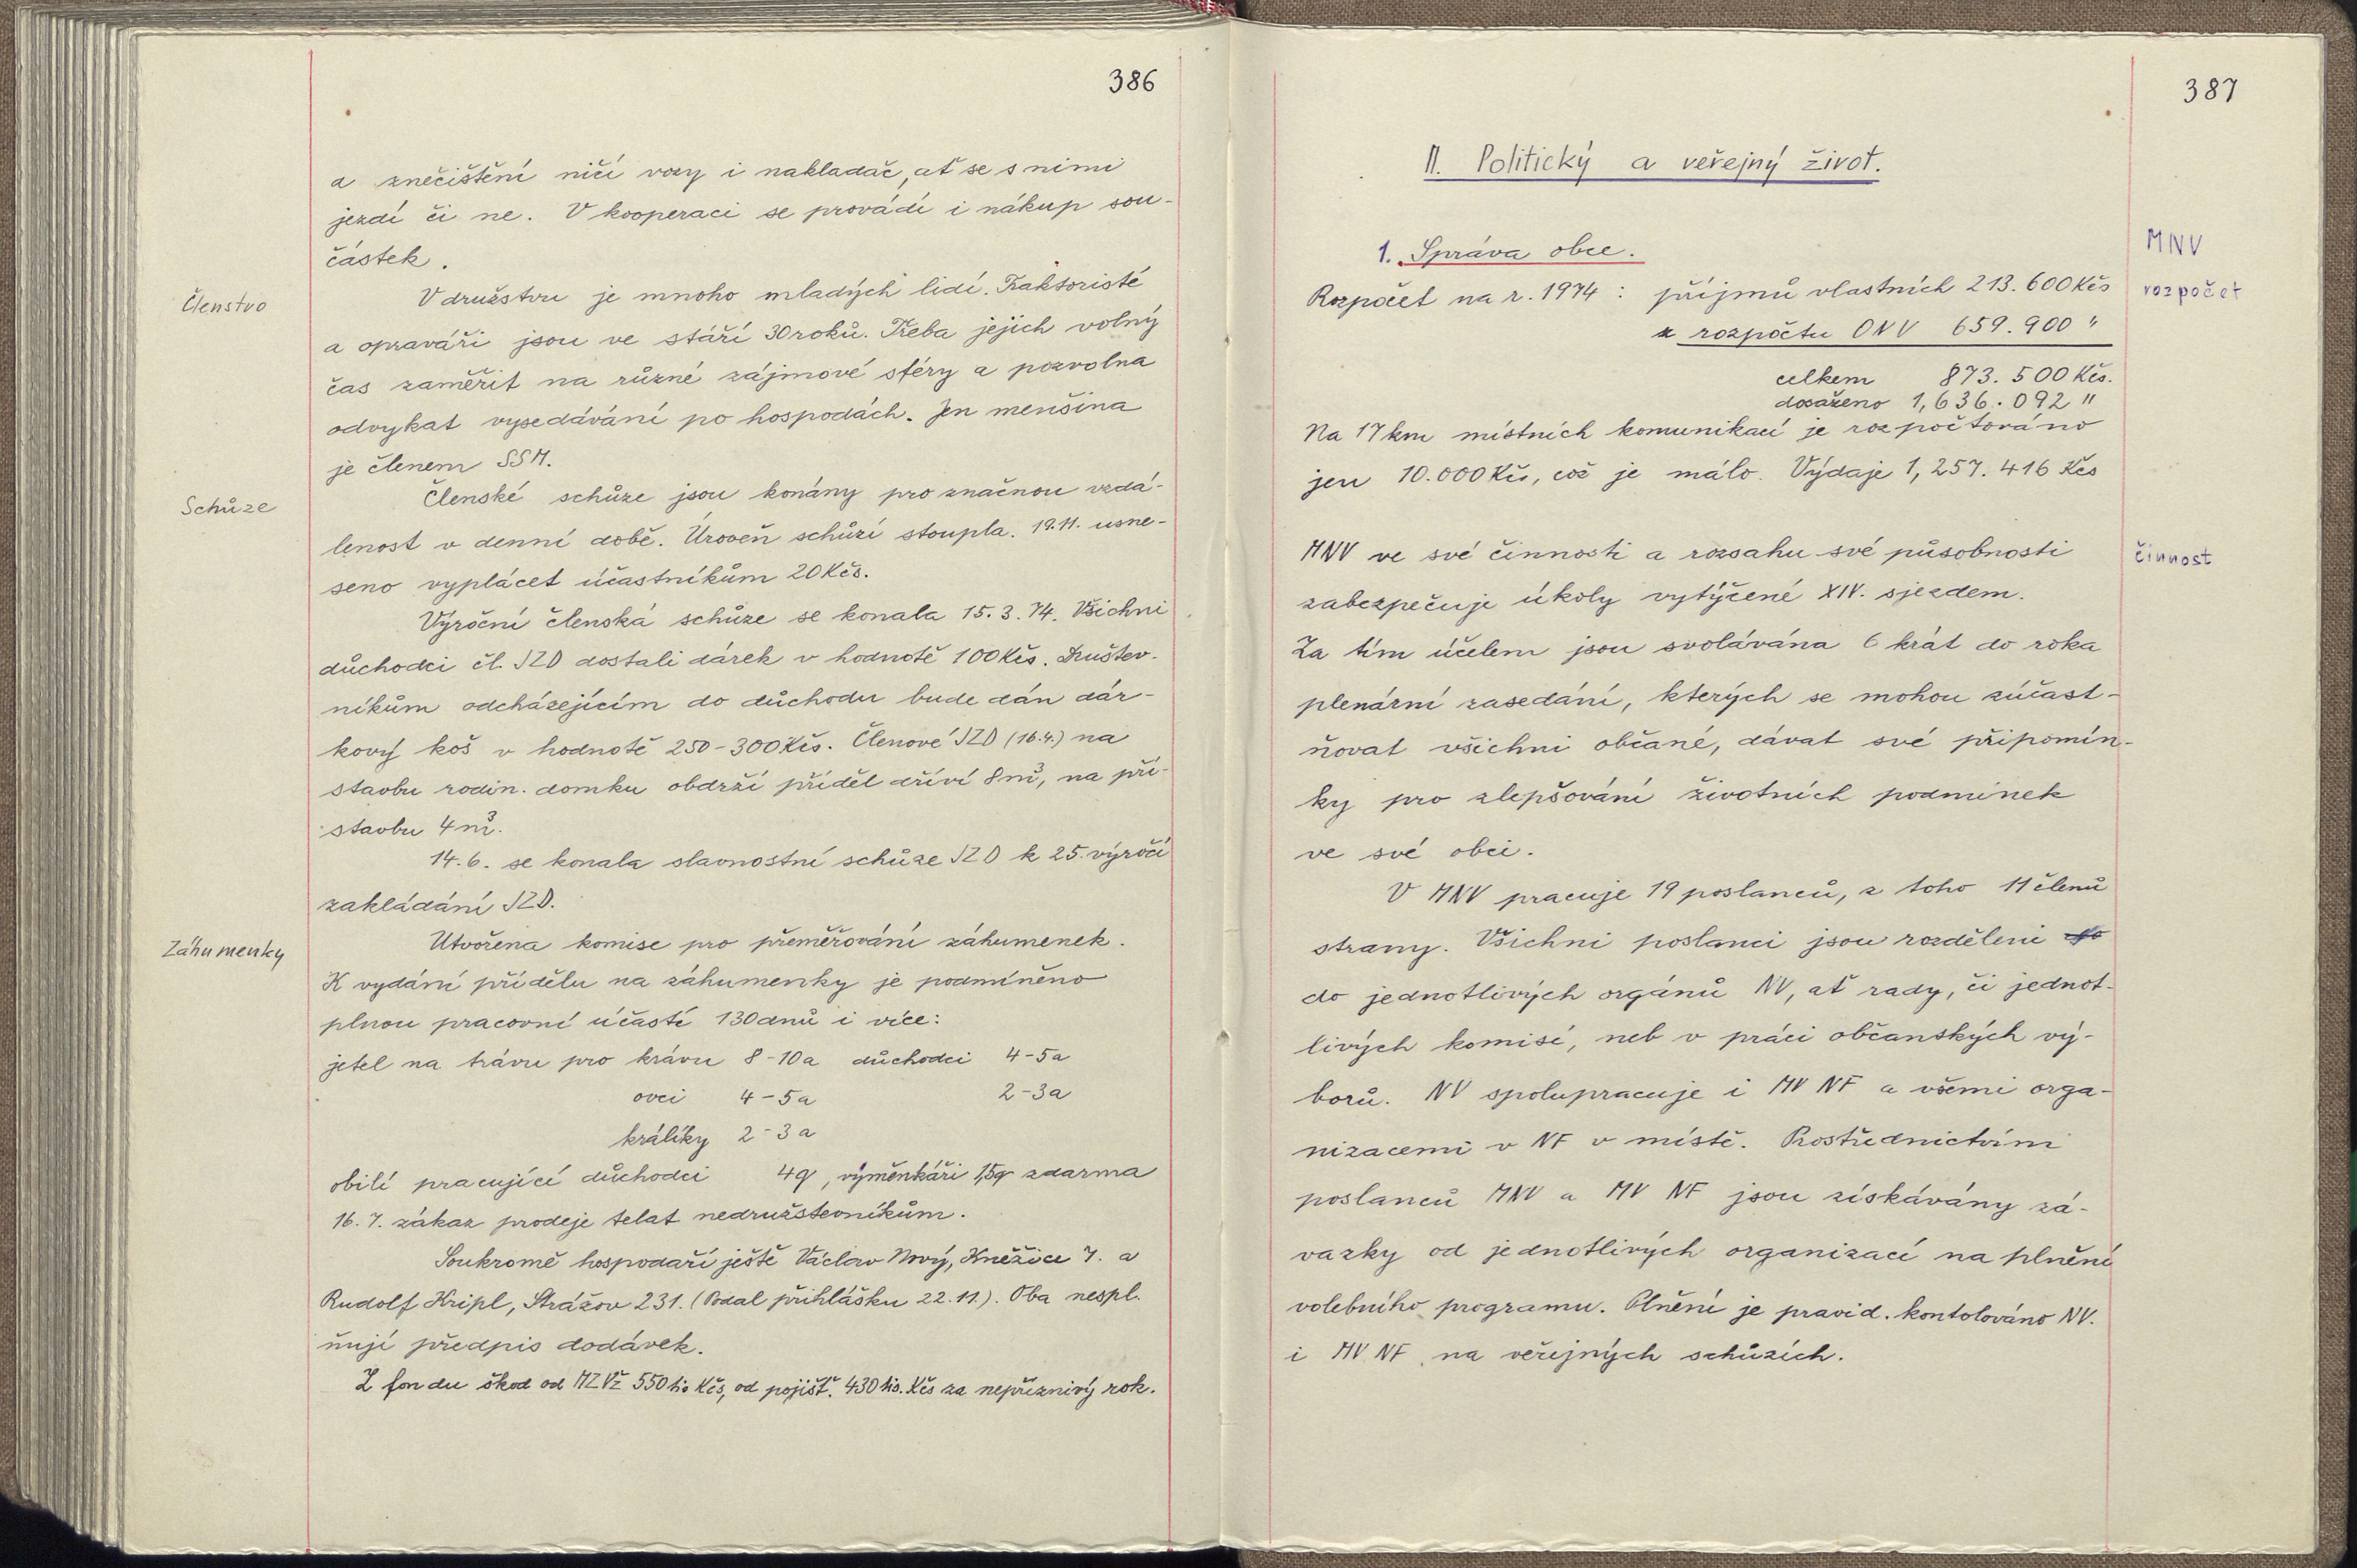 386
a znečištění ničí vozy i nakladač, ať se s nimi
jezdí či ne. V kooperaci se provádí i nákup sou-
částek.
Členstvo
V družstvu je mnoho mladých lidí. Traktoristé
a opraváři jsou ve stáří 30 roků. Třeba jejich volný
čas zaměřit na různé zájmové sféry a pozvolna
odvykat vysedávání po hospodách. Jen menšina
je členem SSM.
Schůze
Členské schůze jsou konány pro značnou vzdá-
lenost v denní době. Úroveň schůzí stoupla. 19.11. usne-
seno vyplácet účastníkům 20 Kčs.
Výroční členská schůze se konala 15.3.74. Všichni
důchodci čl. JZD dostali dárek v hodnotě 100 Kčs. Družstev-
níkům odcházejícím do důchodu bude dán dár-
kový koš v hodnotě 250-300 Kčs. Členové JZD (16.4.) na
stavbu rodin. domku obdrží příděl dříví 8 m³, na pří-
stavbu 4 m³.
14.6. se konala slavnostní schůze JZD k 25. výročí
zakládání JZD.
Záhumenky
Utvořena komise pro přeměřování záhumenek.
K vydání přídělu na záhumenky je podmíněno
plnou pracovní účastí 130 dnů i více:
jetel na trávu pro krávu 8-10a důchodci 4-5a
ovci 4-5a 2-3a
králíky 2-3a
obilí pracující důchodci 4q, výměnkáři 1,5q zdarma
16.7. zákaz prodeje telat nedružstevníkům.
Soukromě hospodaří ještě Václav Nový, Kněžice 7. a
Rudolf Kripl, Strážov 231. (Podal přihlášku 22.11.). Oba nespl.
ňují předpis dodávek.
Z fondu škod od MZVž 550 tis Kčs, od pojišť. 430 tis. Kčs za nepříznivý rok.
387
II. Politický a veřejný život.
1. Správa obce.
MNV
Rozpočet na r. 1974: příjmů vlastních 213.600 Kčs
rozpočet
z rozpočtu ONV 659.900 "
celkem 873.500 Kčs.
dosaženo 1,636.092 "
Na 17 km místních komunikací je rozpočtováno
jen 10.000 Kčs, což je málo. Výdaje 1,257.416 Kčs
MNV ve své činnosti a rozsahu své působnosti
činnost
zabezpečuje úkoly vytýčené XIV. sjezdem.
Za tím účelem jsou svolávána 6 krát do roka
plenární zasedání, kterých se mohou zúčast-
ňovat všichni občané, dávat své připomín-
ky pro zlepšování životních podmínek
ve své obci.
V MNV pracuje 19 poslanců, z toho 11 členů
strany. Všichni poslanci jsou rozděleni
do jednotlivých orgánů NV, ať rady, či jednot-
livých komisí, neb v práci občanských vý-
borů. NV spolupracuje i MV NF a všemi orga-
nizacemi v NF v místě. Prostřednictvím
poslanců MNV a MV NF jsou získávány zá-
vazky od jednotlivých organizací na plnění
volebního programu. Plnění je pravid. kontolováno NV.
i MV NF na veřejných schůzích.